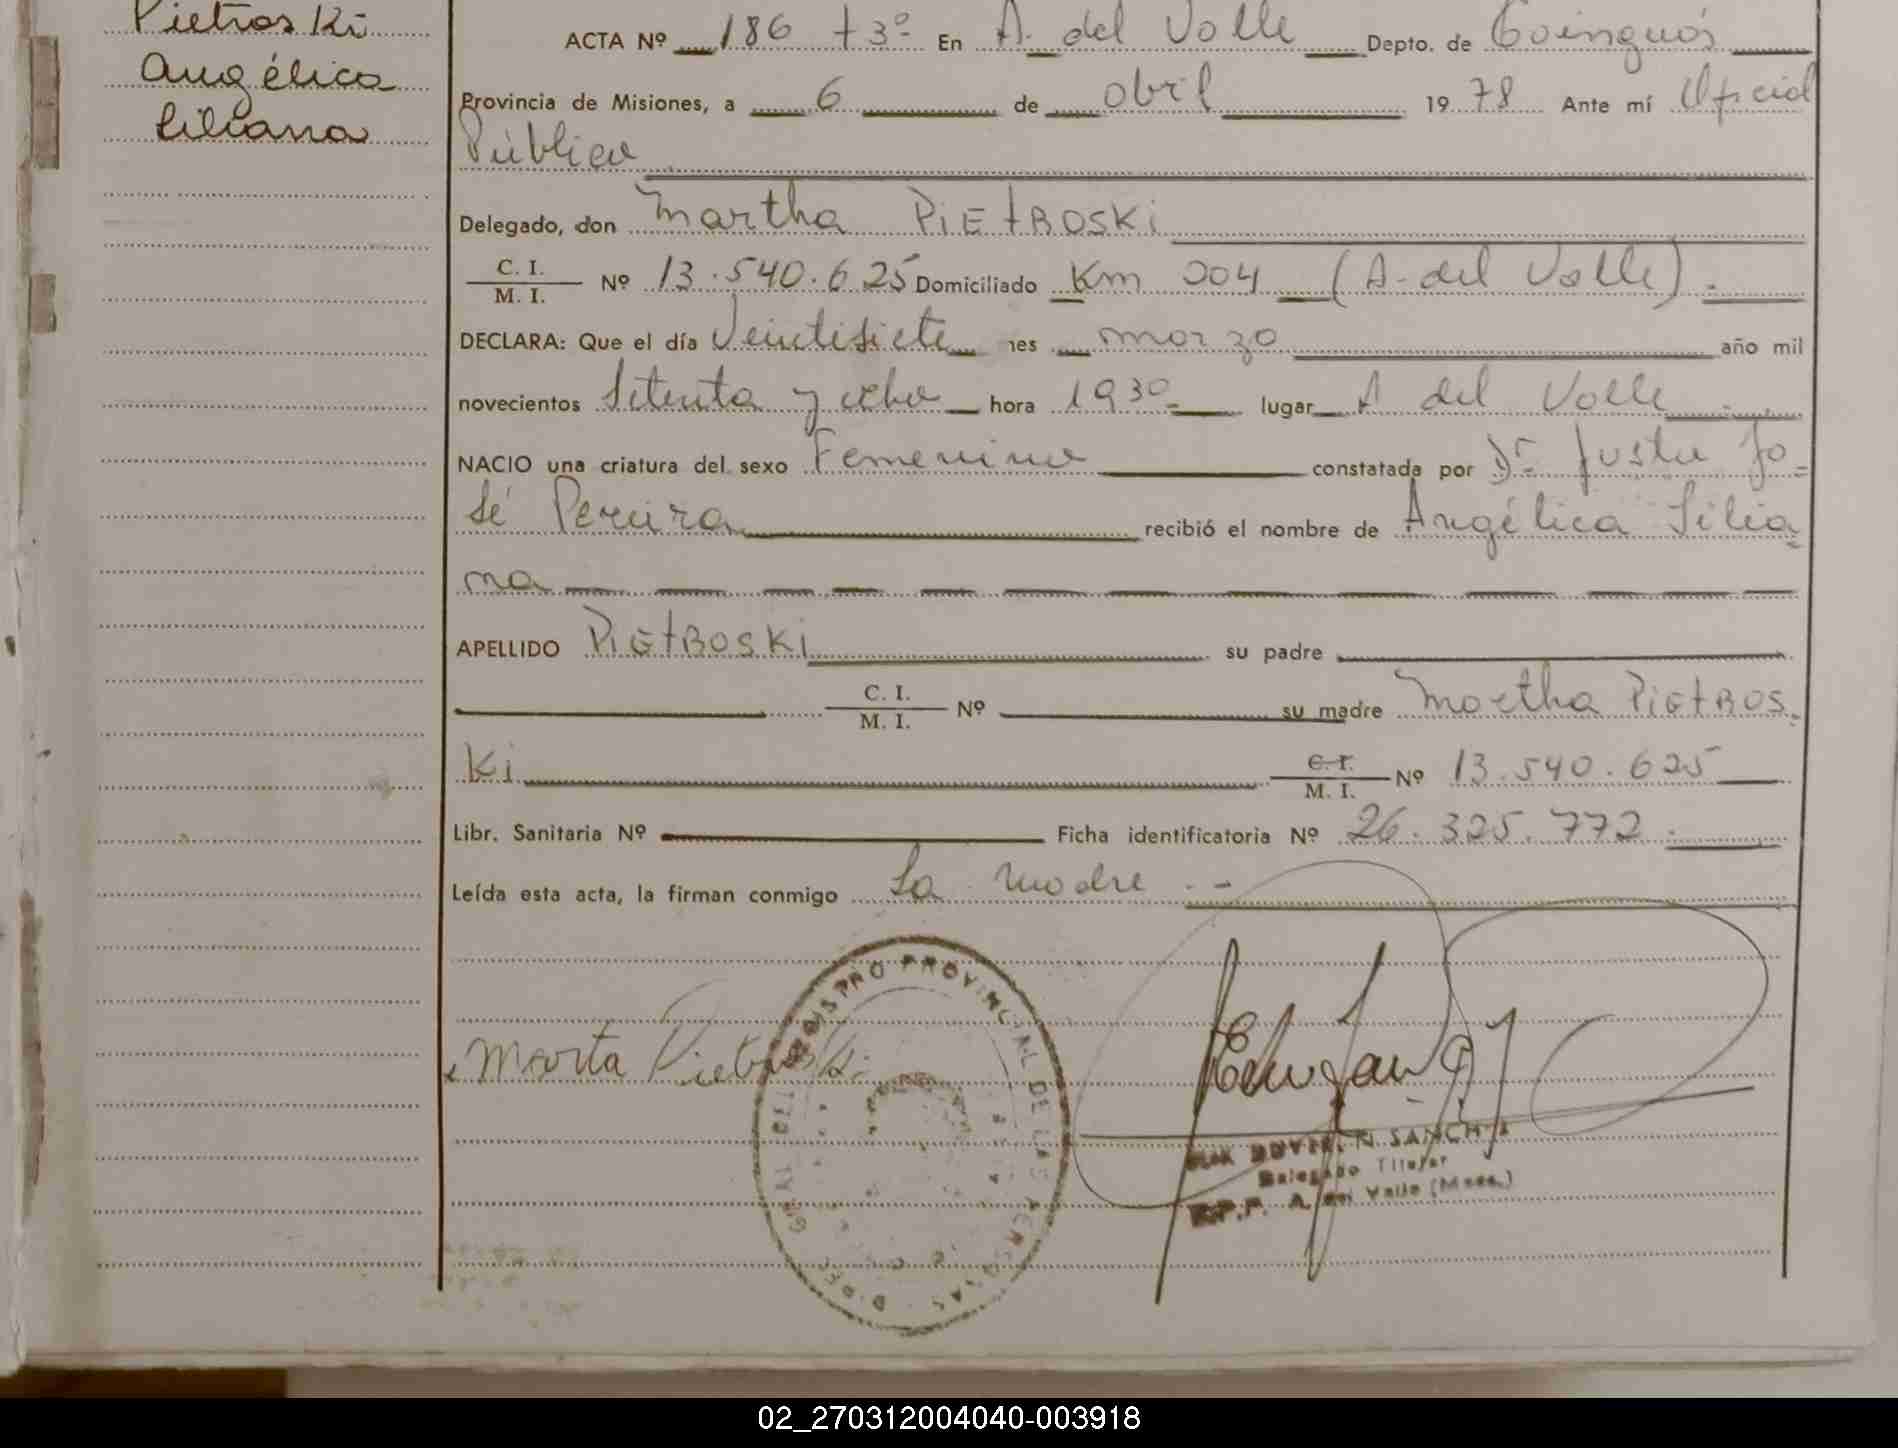 Pietroski
Angélica
Liliana
ACTA Nº 186 T3º En A. del Valle Depto. de Cainguás
Provincia de Misiones, a 6 de abril 1978 Ante mí Oficial
Público
Delegado, don Martha PIETROSKI
C. I.
M. I.
Nº 13.540.625 Domiciliado Km 204 (A. del Valle)
DECLARA: Que el día Veintisiete mes marzo año mil
novecientos Setenta y ocho hora 1930 lugar A del Valle
NACIO una criatura del sexo Femenino constatada por Dr. Justo Jo-
sé Pereira recibió el nombre de Angélica Lilia-
na
APELLIDO PIETROSKI su padre
C. I.
M. I.
Nº su madre Martha PIETROS-
Ki
C. I.
M. I.
Nº 13.540.625
Libr. Sanitaria Nº Ficha identificatoria Nº 26.325.772
Leída esta acta, la firman conmigo La madre
Marta Pietroski
REGISTRO PROVINCIAL DE LAS PERSONAS
SANCH
Delegado Titular
R.P.P. A. del Valle (Mnes.)
02_270312004040-003918